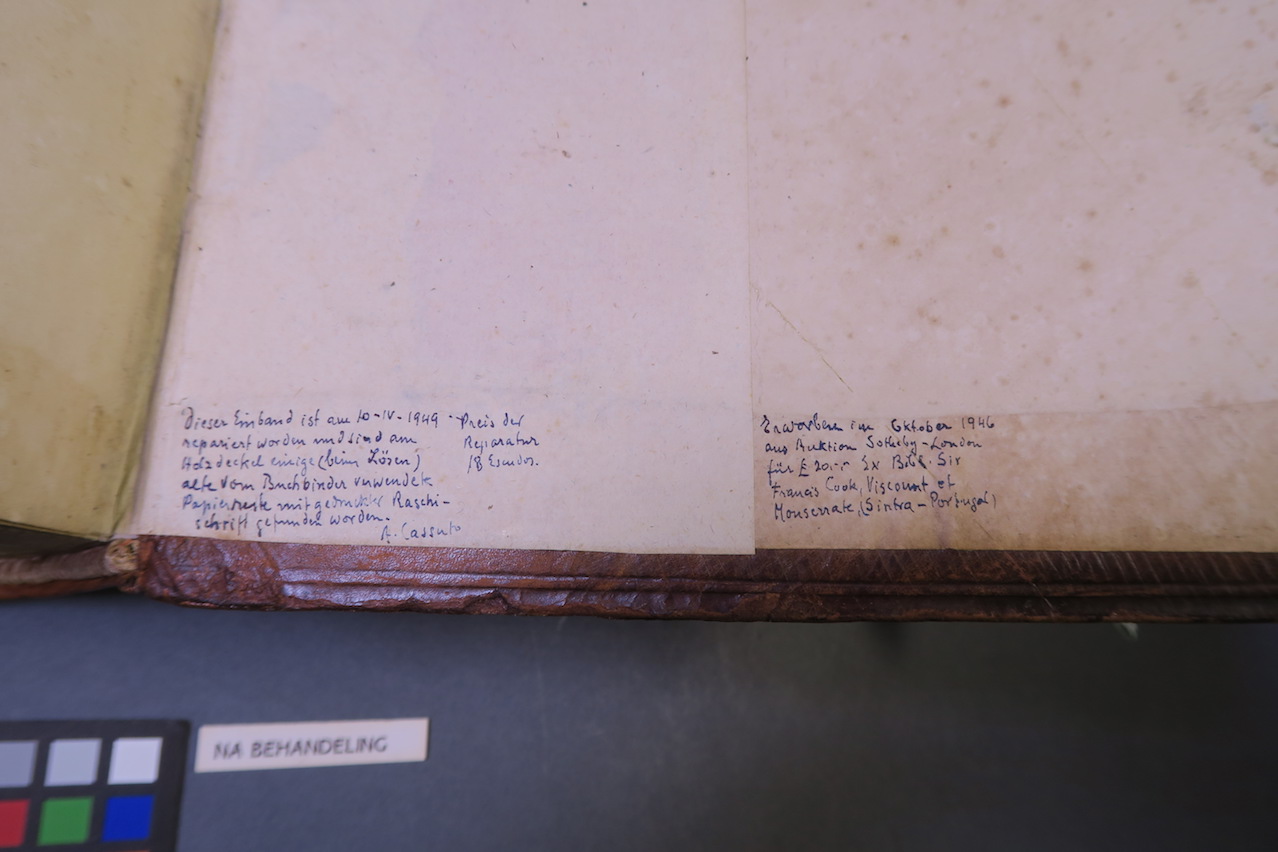 Dieser Einband ist am 10-IV-1949
repariert worden und sind am
Holzdeckel einige (beim Lösen)
alte vom Buchbinder verwendete
Papierreste mit gedruckter Raschi-
schrift gefunden worden.
A. Cassuto
Preis der
Reparatur
18 Escudos.
Erworben im Oktober 1946
aus Auktion Sotheby-London
für £ 20.-.- Ex Bibl. Sir
Francis Cook, Viscount of
Monserrate, (Sintra-Portugal)
NA BEHANDELING